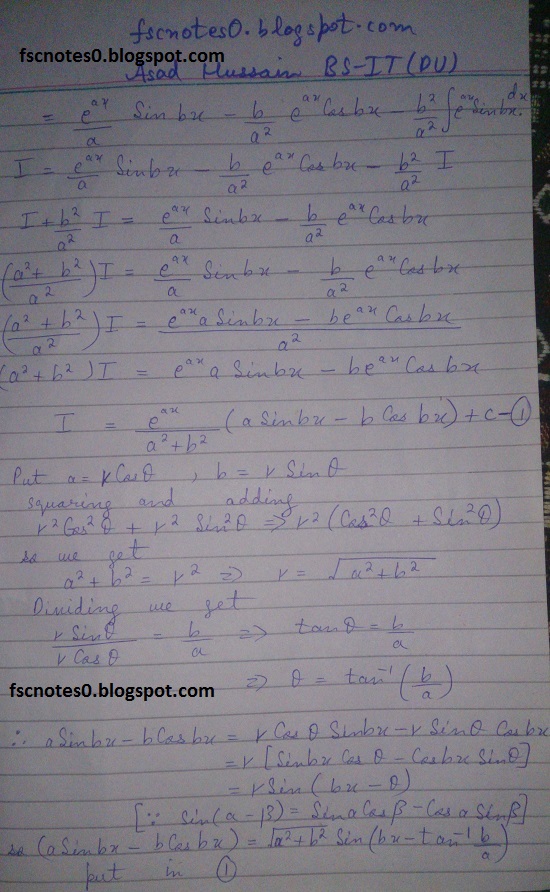 fscnotes0.blogspot.com
fscnotes0.blogspot.com
Asad Hussain BS-IT(DU)
= e^ax/a Sin bx - b/a² e^ax Cos bx - b²/a² ∫e^ax Sin bx dx.
I = e^ax/a Sin bx - b/a² e^ax Cos bx - b²/a² I
I + b²/a² I = e^ax/a Sin bx - b/a² e^ax Cos bx
(a² + b²/a²) I = e^ax/a Sin bx - b/a² e^ax Cos bx
(a² + b²/a²) I = e^ax a Sin bx - b e^ax Cos bx/a²
(a² + b²) I = e^ax a Sin bx - b e^ax Cos bx
I = e^ax/a² + b² (a Sin bx - b Cos bx) + c - ①
Put a = r Cos θ , b = r Sin θ
squaring and adding
r² Cos² θ + r² Sin² θ => r² (Cos² θ + Sin² θ)
so we get
a² + b² = r² => r = √a² + b²
Dividing we get
r Sin θ/r Cos θ = b/a => tan θ = b/a
fscnotes0.blogspot.com => θ = tan⁻¹ (b/a)
∴ a Sin bx - b Cos bx = r Cos θ Sin bx - r Sin θ Cos bx
= r [Sin bx Cos θ - Cos bx Sin θ]
= r Sin (bx - θ)
[∵ Sin(α - β) = Sin α Cos β - Cos α Sin β]
so (a Sin bx - b Cos bx) = √a² + b² Sin (bx - tan⁻¹ b/a)
put in ①